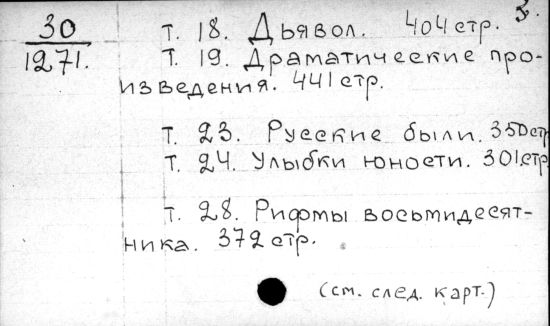 30
1271.
3.
т. 18. Дьявол. 404 стр.
т. 19. Драматические про-
изведения. 441 стр.
т. 23. Русские были. 350 стр
т. 24. Улыбки юности. 301 стр
т. 28. Рифмы восьмидесят-
ника. 372 стр.
(см. след. карт.)